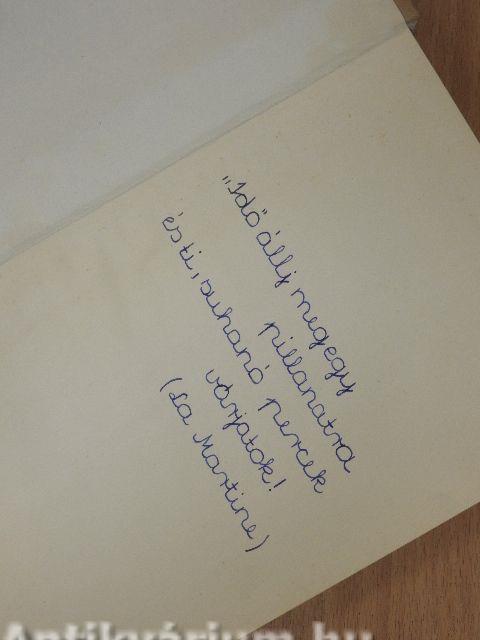 "Idő" állj meg egy
pillanatra
és ti, suhanó percek
várjatok!
(La Martine)
Antikvárium.hu